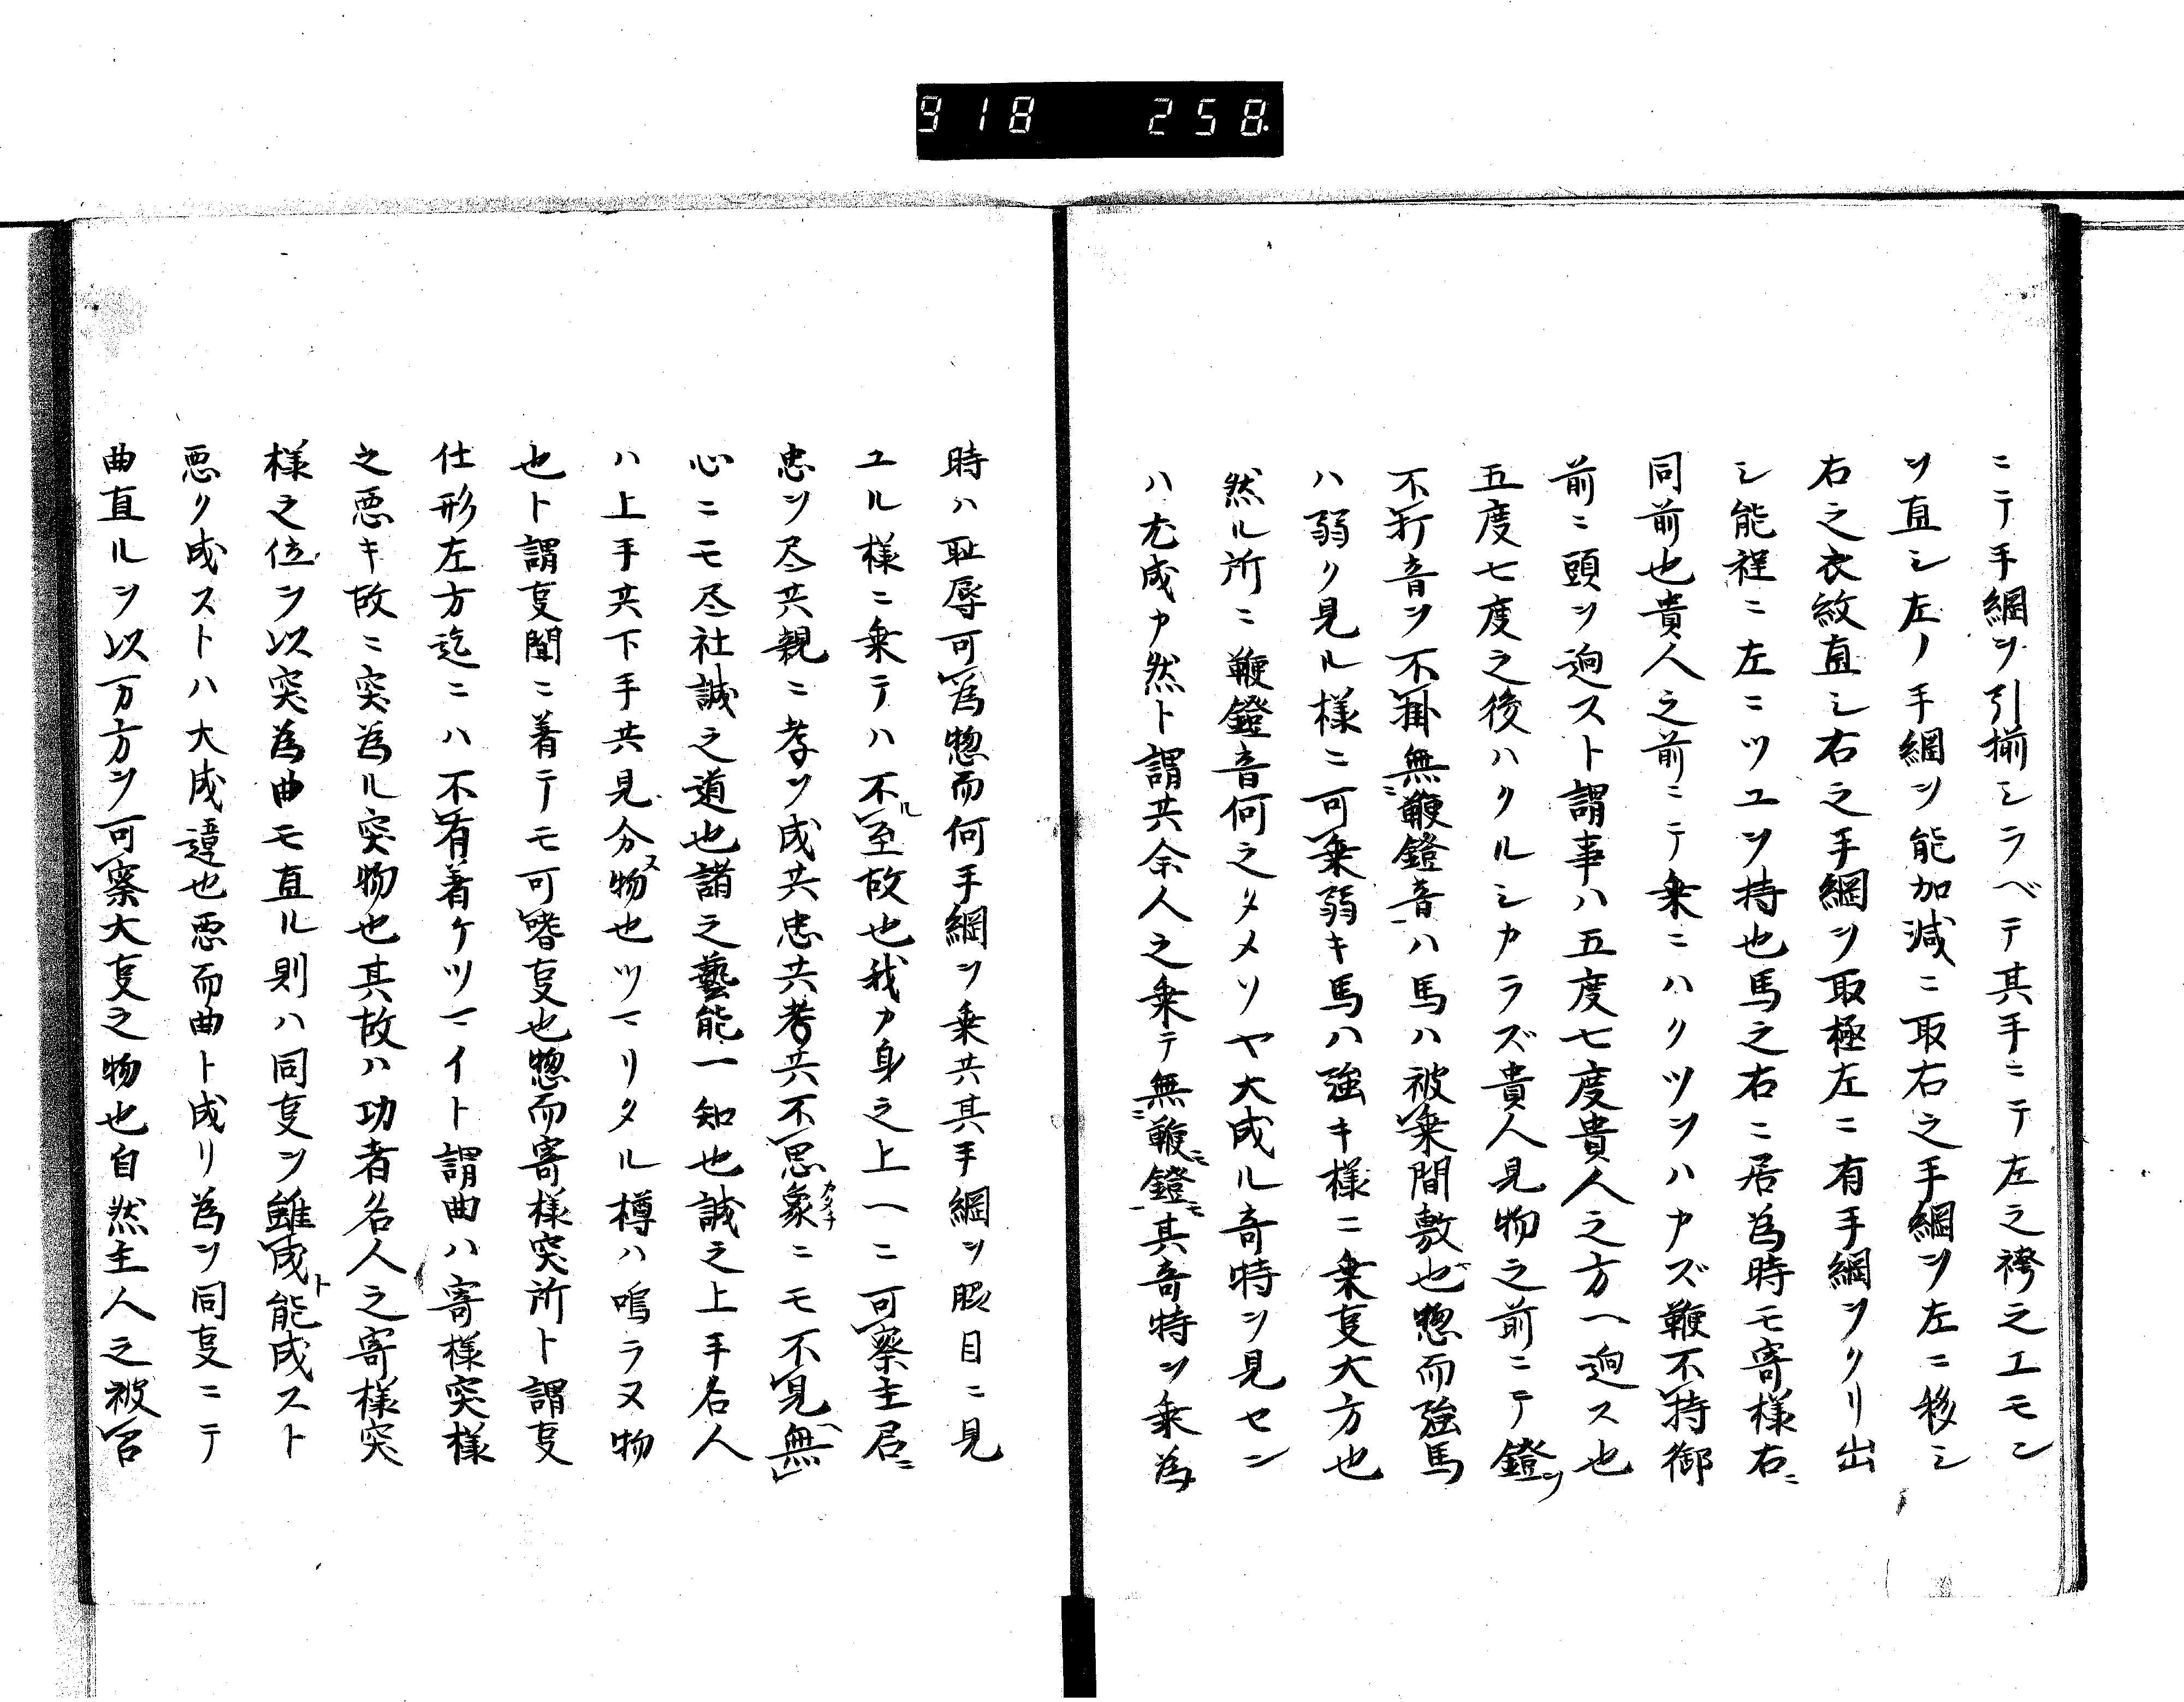 918 258.
ニテ手綱ヲ引揃シラベテ其手ニテ左之袴之エモン
ヲ直シ左ノ手綱ヲ能加減ニ取右之手綱ヲ左ニ移シ
右之衣紋直シ右之手綱ヲ取極左ニ有手綱ヲクリ出
シ能程ニ左ニツユヲ持也馬之右ニ居為時モ寄様右ニ
同前也貴人之前ニテ乗ニハクツヲハカズ鞭不持御
前ニ頭ヲ迫スト謂事ハ五度七度貴人之方ヘ迫ス也
五度七度之後ハクルシカラズ貴人見物之前ニテ鐙ヲ
不打音ヲ不掛無鞭鐙音ハ馬ハ被乗間敷也惣而強馬
ハ弱ク見ル様ニ可乗弱キ馬ハ強キ様ニ乗叓大方也
然ル所ニ鞭鐙音何之タメソヤ大成ル奇特ヲ見セン
ハ尤成カ然ト謂共余人之乗テ無鞭鐙其奇特ヲ乗為
時ハ耻辱可為惣而何手綱ヲ乗共其手綱ヲ脇目ニ見
ユル様ニ乗テハ不至故也我カ身之上ヘニ可察主君ニ
忠ヲ尽共親ニ孝ヲ成共忠共孝共不思象カタチニモ不見無
心ニモ尽社誠之道也諸之藝能一知也誠之上手名人
ハ上手共下手共見分ヌ物也ツマリタル樽ハ鳴ラヌ物
也ト謂叓聞ニ着テモ可嗜叓也惣而寄様突所ト謂叓
仕形左方迄ニハ不有着ケツマイト謂曲ハ寄様突様
之悪キ故ニ突為ル突物也其故ハ功者名人之寄様突
様之位ヲ以突為曲モ直ル則ハ同叓ヲ雖成ト能成スト
悪ク成ストハ大成違也悪而曲ト成リ為ヲ同叓ニテ
曲直ルヲ以万方ヲ可察大叓之物也自然主人之被召